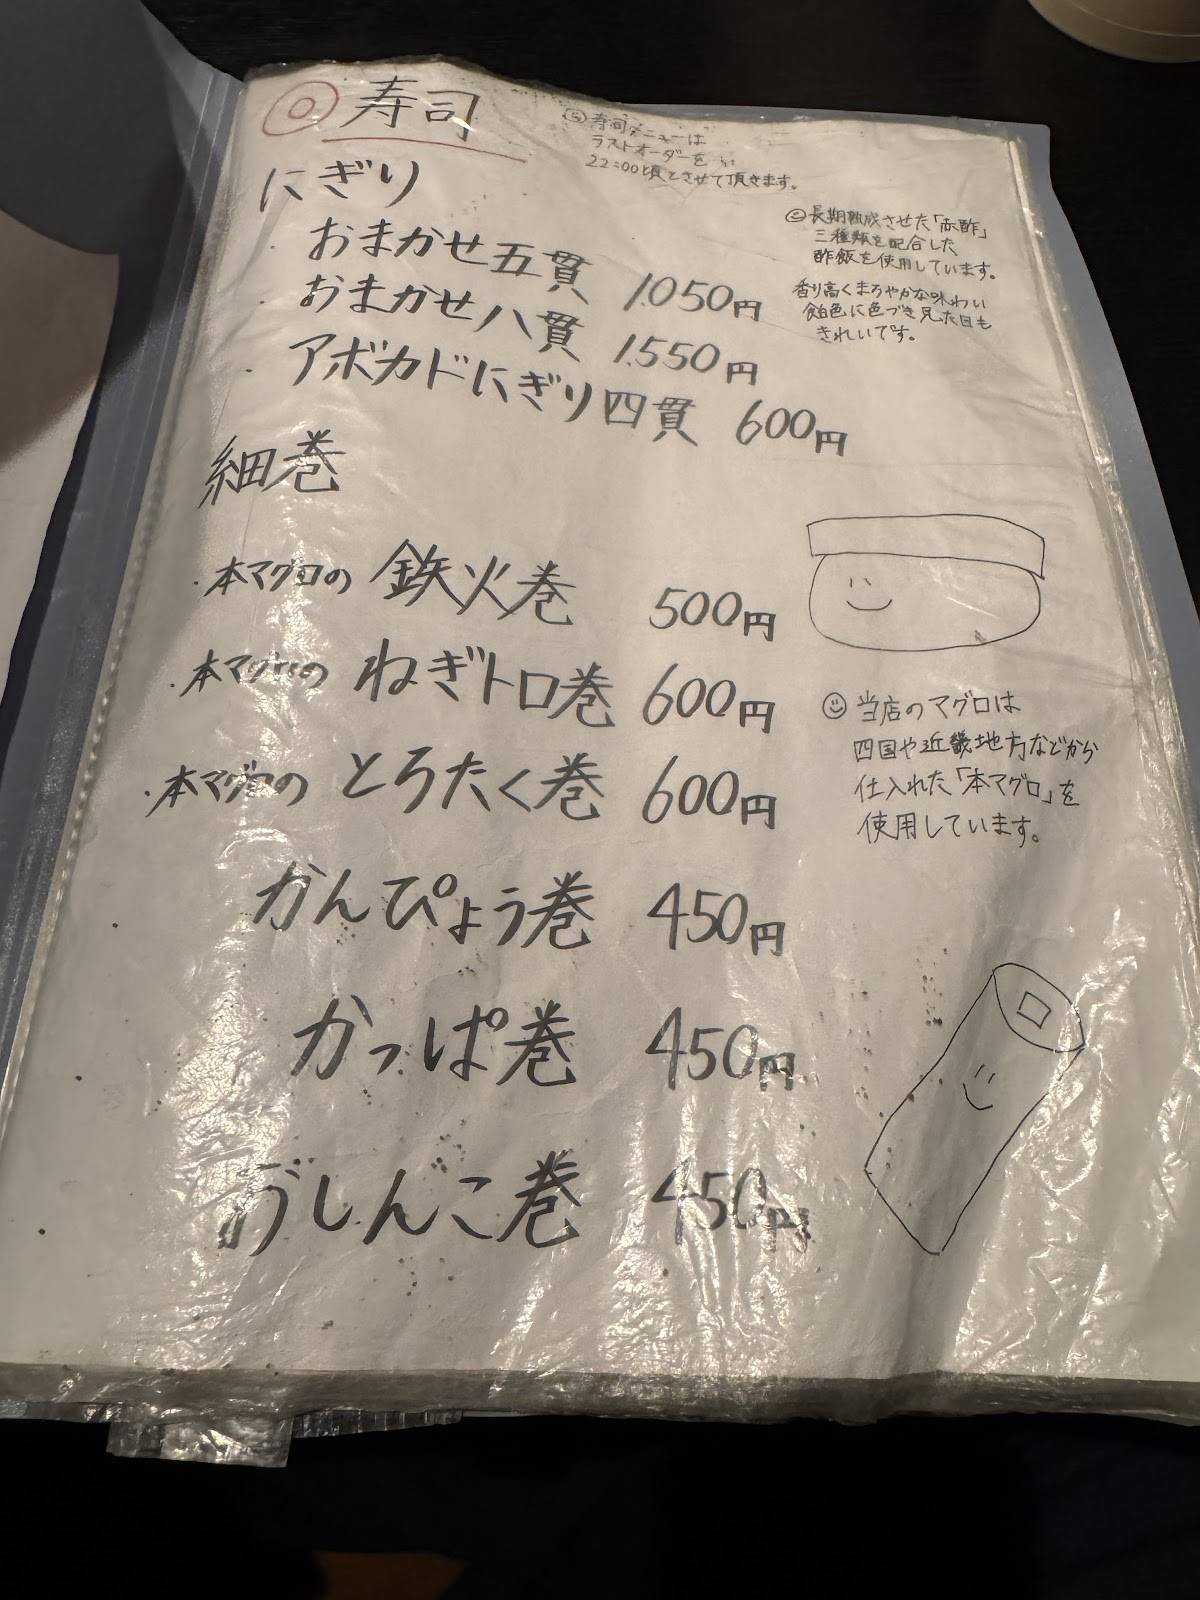 寿司
寿司メニューは
ラストオーダーを
22:00頃とさせて頂きます。
にぎり
・おまかせ五貫 1.050円
・おまかせ八貫 1.550円
・アボカドにぎり四貫 600円
長期熟成させた「赤酢」
三種類を配合した
酢飯を使用しています。
香り高くまろやかな味わい
飴色に色づき見た目も
きれいです。
細巻
・本マグロの 鉄火巻 500円
・本マグロの ねぎトロ巻 600円
・本マグロの とろたく巻 600円
かんぴょう巻 450円
かっぱ巻 450円
おしんこ巻 450円
当店のマグロは
四国や近畿地方などから
仕入れた「本マグロ」を
使用しています。